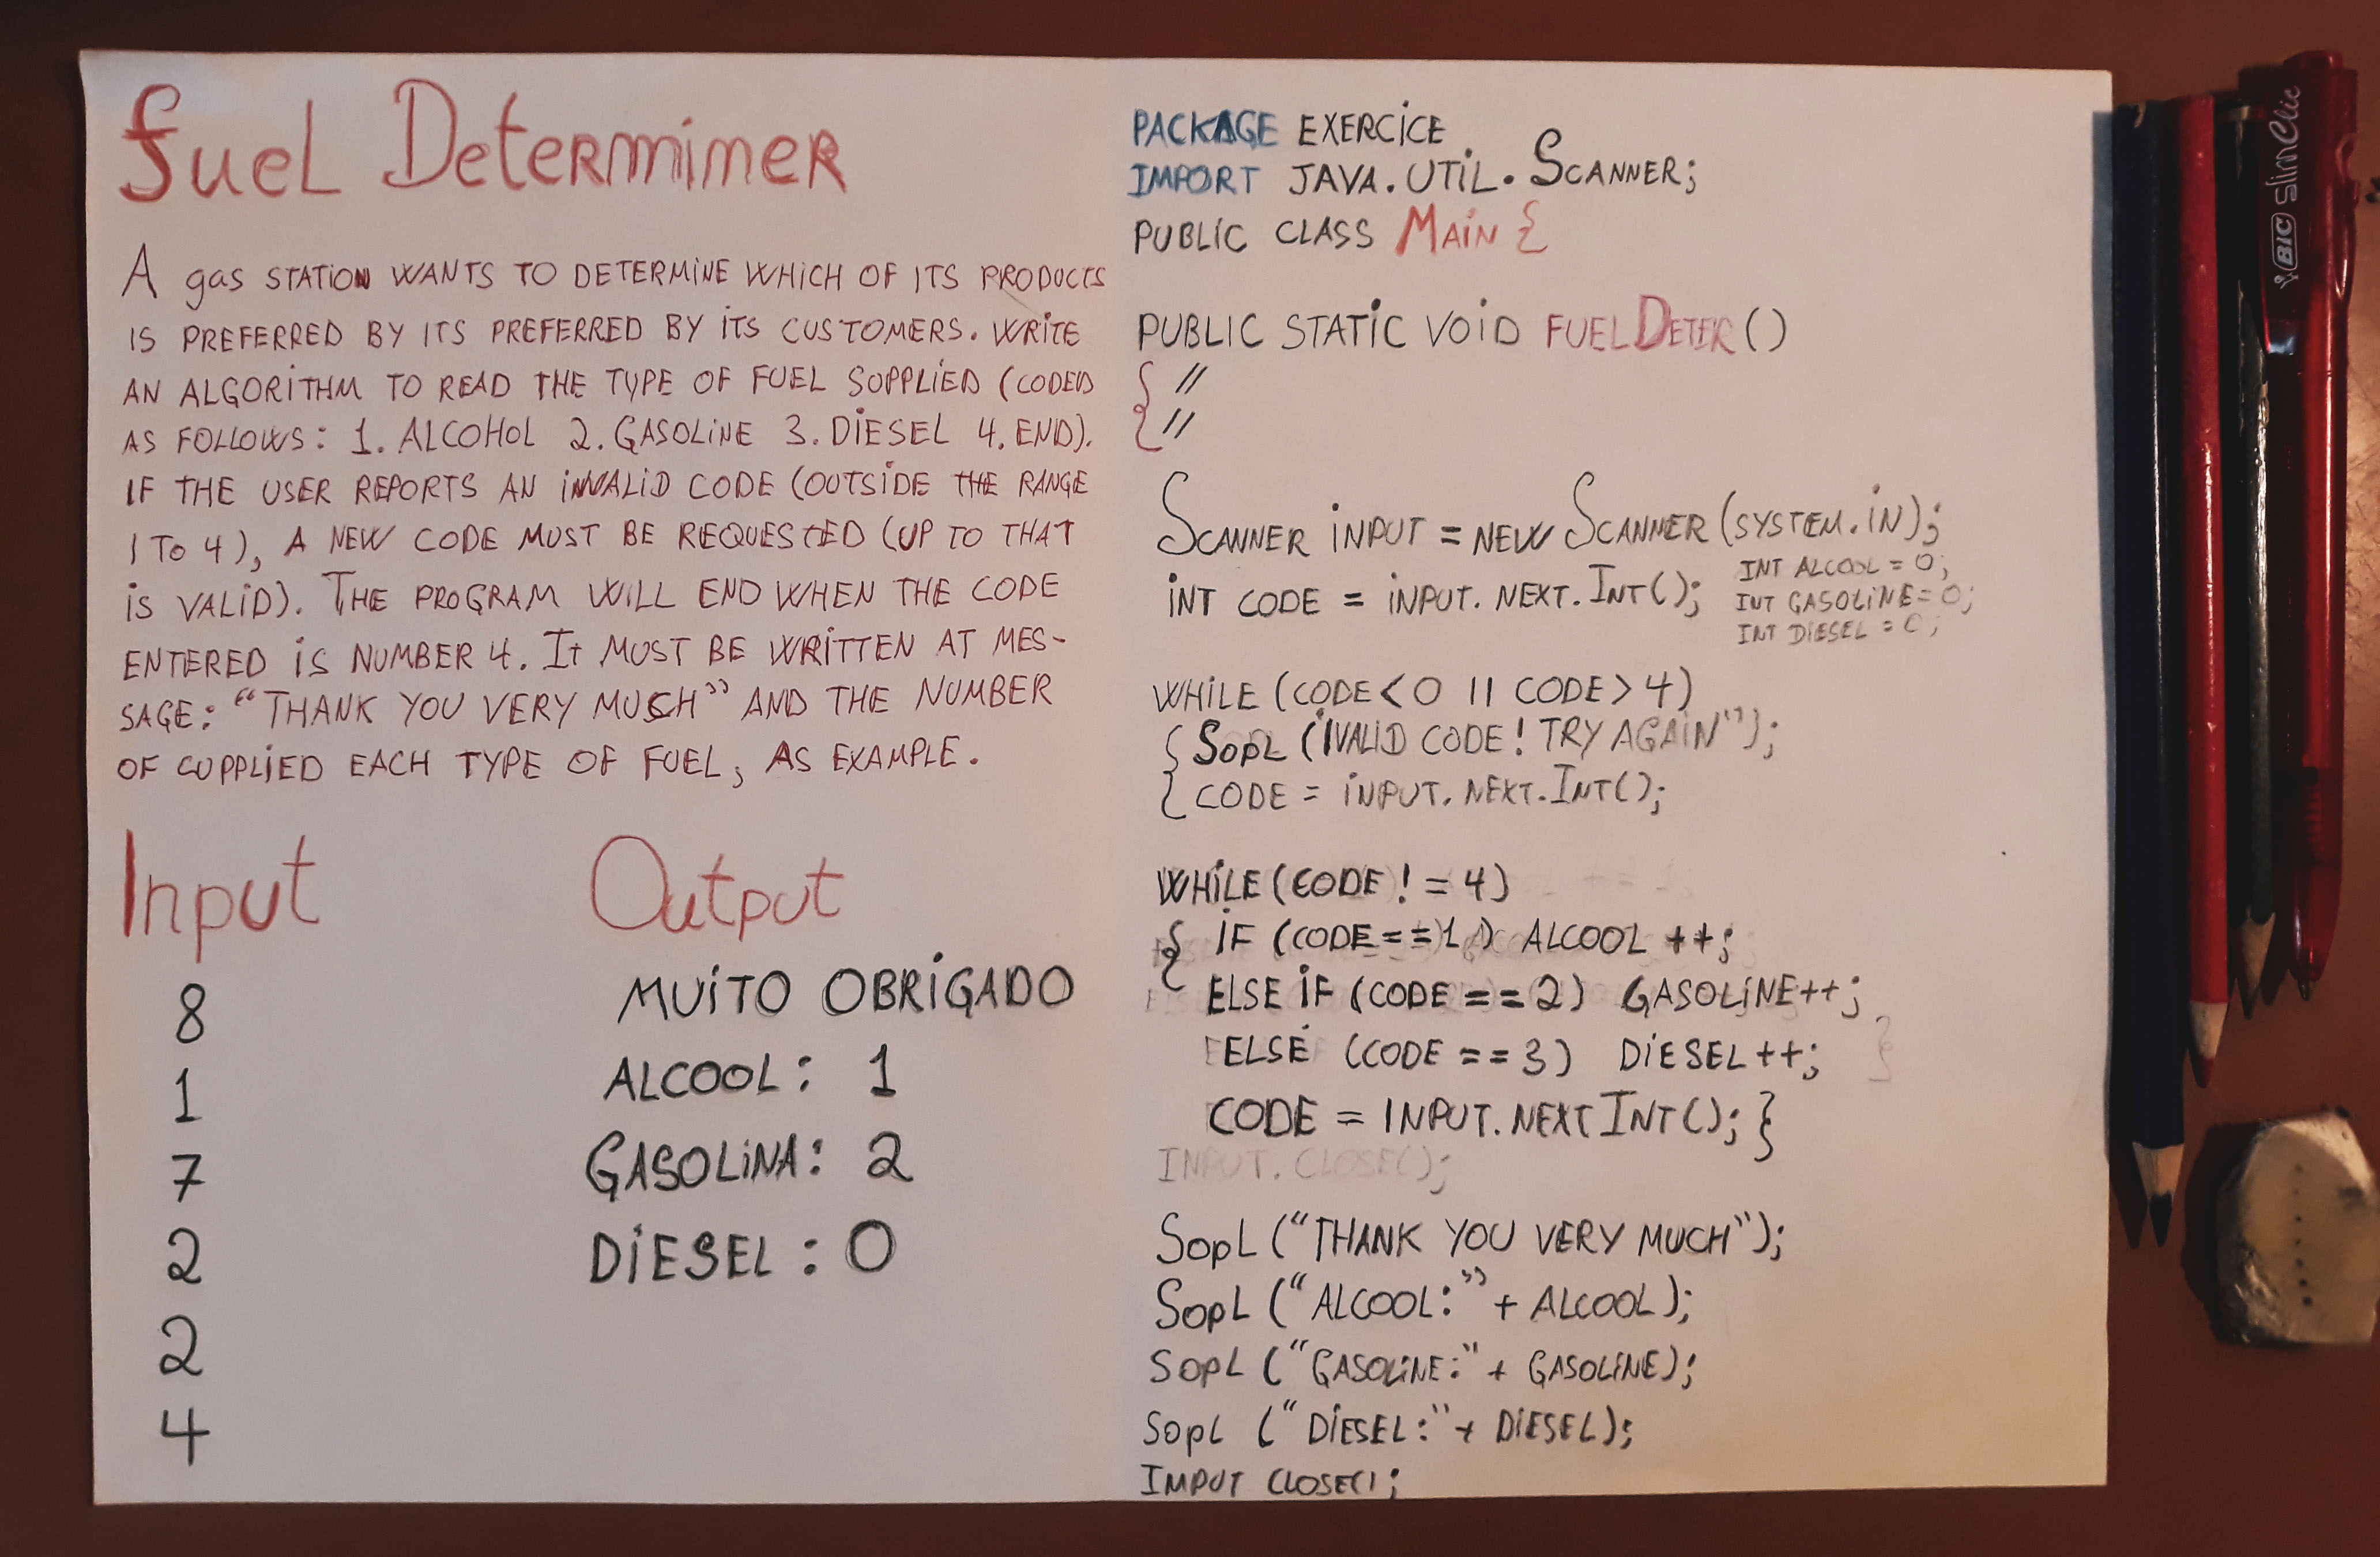 Fuel Determiner
A gas STATION WANTS TO DETERMINE WHICH OF ITS PRODUCTS
IS PREFERRED BY ITS PREFERRED BY ITS CUSTOMERS. WRITE
AN ALGORITHM TO READ THE TYPE OF FUEL SUPPLIED (CODED
AS FOLLOWS: 1. ALCOHOL 2. GASOLINE 3. DIESEL 4. END).
IF THE USER REPORTS AN INVALID CODE (OUTSIDE THE RANGE
1 TO 4), A NEW CODE MUST BE REQUESTED (UP TO THAT
IS VALID). THE PROGRAM WILL END WHEN THE CODE
ENTERED IS NUMBER 4. It MUST BE WRITTEN AT MES-
SAGE: "THANK YOU VERY MUCH" AND THE NUMBER
OF SUPPLIED EACH TYPE OF FUEL, AS EXAMPLE.
Input
8
1
7
2
2
4
Output
MUITO OBRIGADO
ALCOOL: 1
GASOLINA: 2
DIESEL: 0
PACKAGE EXERCICE
IMPORT JAVA.UTIL.SCANNER;
PUBLIC CLASS MAIN {
PUBLIC STATIC VOID FUELDETER()
{ //
//
SCANNER INPUT = NEW SCANNER (SYSTEM.IN);
INT CODE = INPUT. NEXT.INT();
INT ALCOOL = 0;
INT GASOLINE = 0;
INT DIESEL = 0;
WHILE (CODE < 0 || CODE > 4)
{ SOPL ("IVALID CODE! TRY AGAIN");
CODE = INPUT. NEXT.INT();
WHILE (CODE != 4)
{ IF (CODE == 1) ALCOOL ++;
ELSE IF (CODE == 2) GASOLINE++;
ELSE (CODE == 3) DIESEL++; }
CODE = INPUT.NEXTINT(); }
INPUT.CLOSE();
SOPL ("THANK YOU VERY MUCH");
SOPL ("ALCOOL:" + ALCOOL);
SOPL ("GASOLINE:" + GASOLINE);
SOPL ("DIESEL:" + DIESEL);
IMPUT CLOSE();
BIC slimClic